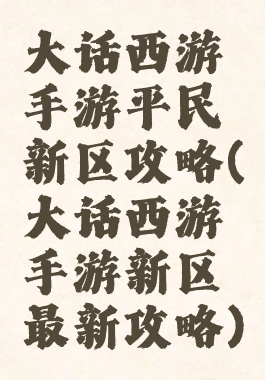 大话西游
手游平民
新区攻略(
大话西游
手游新区
最新攻略)